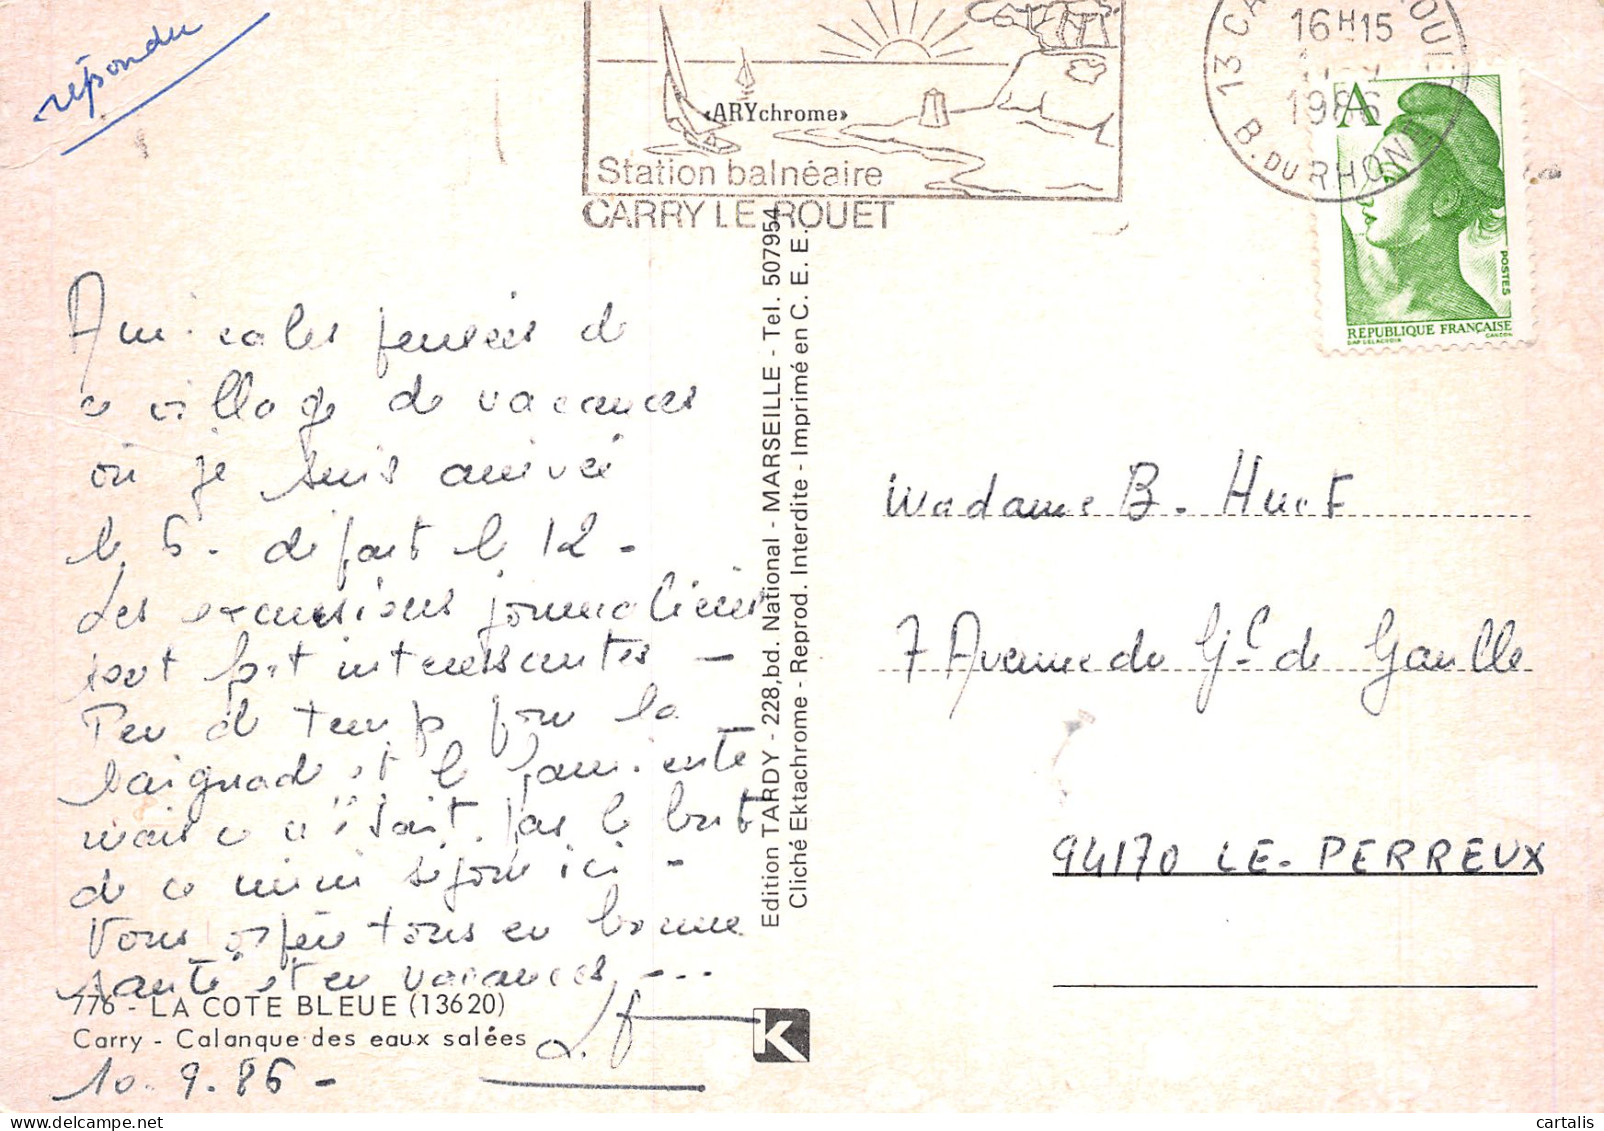 répondu
16H15
1986
13 CA
OUE
B. DU RHON
«ARYchrome»
Station balnéaire
CARRY LE ROUET
A
POSTES
REPUBLIQUE FRANÇAISE
DAP DELACROIX
GANDON
Amicales pensées de
ce village de vacances
où je suis arrivée
le 6. départ le 12 -
Les excursions journalières
sont fort intéressantes -
Peu de temps pour la
baignade et le farniente
mais ce n'était pas le but
de ce mini séjour ici -
Vous espère tous en bonne
santé et en vacances ---
776 - LA COTE BLEUE (13620)
Carry - Calanque des eaux salées
10.9.86 -
Edition TARDY - 228, bd. National - MARSEILLE - Tel. 507954
Cliché Ektachrome - Reprod. Interdite - Imprimé en C. E. E.
K
Madame B. Huet
7 Avenue du Gal de Gaulle
94170 LE-PERREUX
cartalis